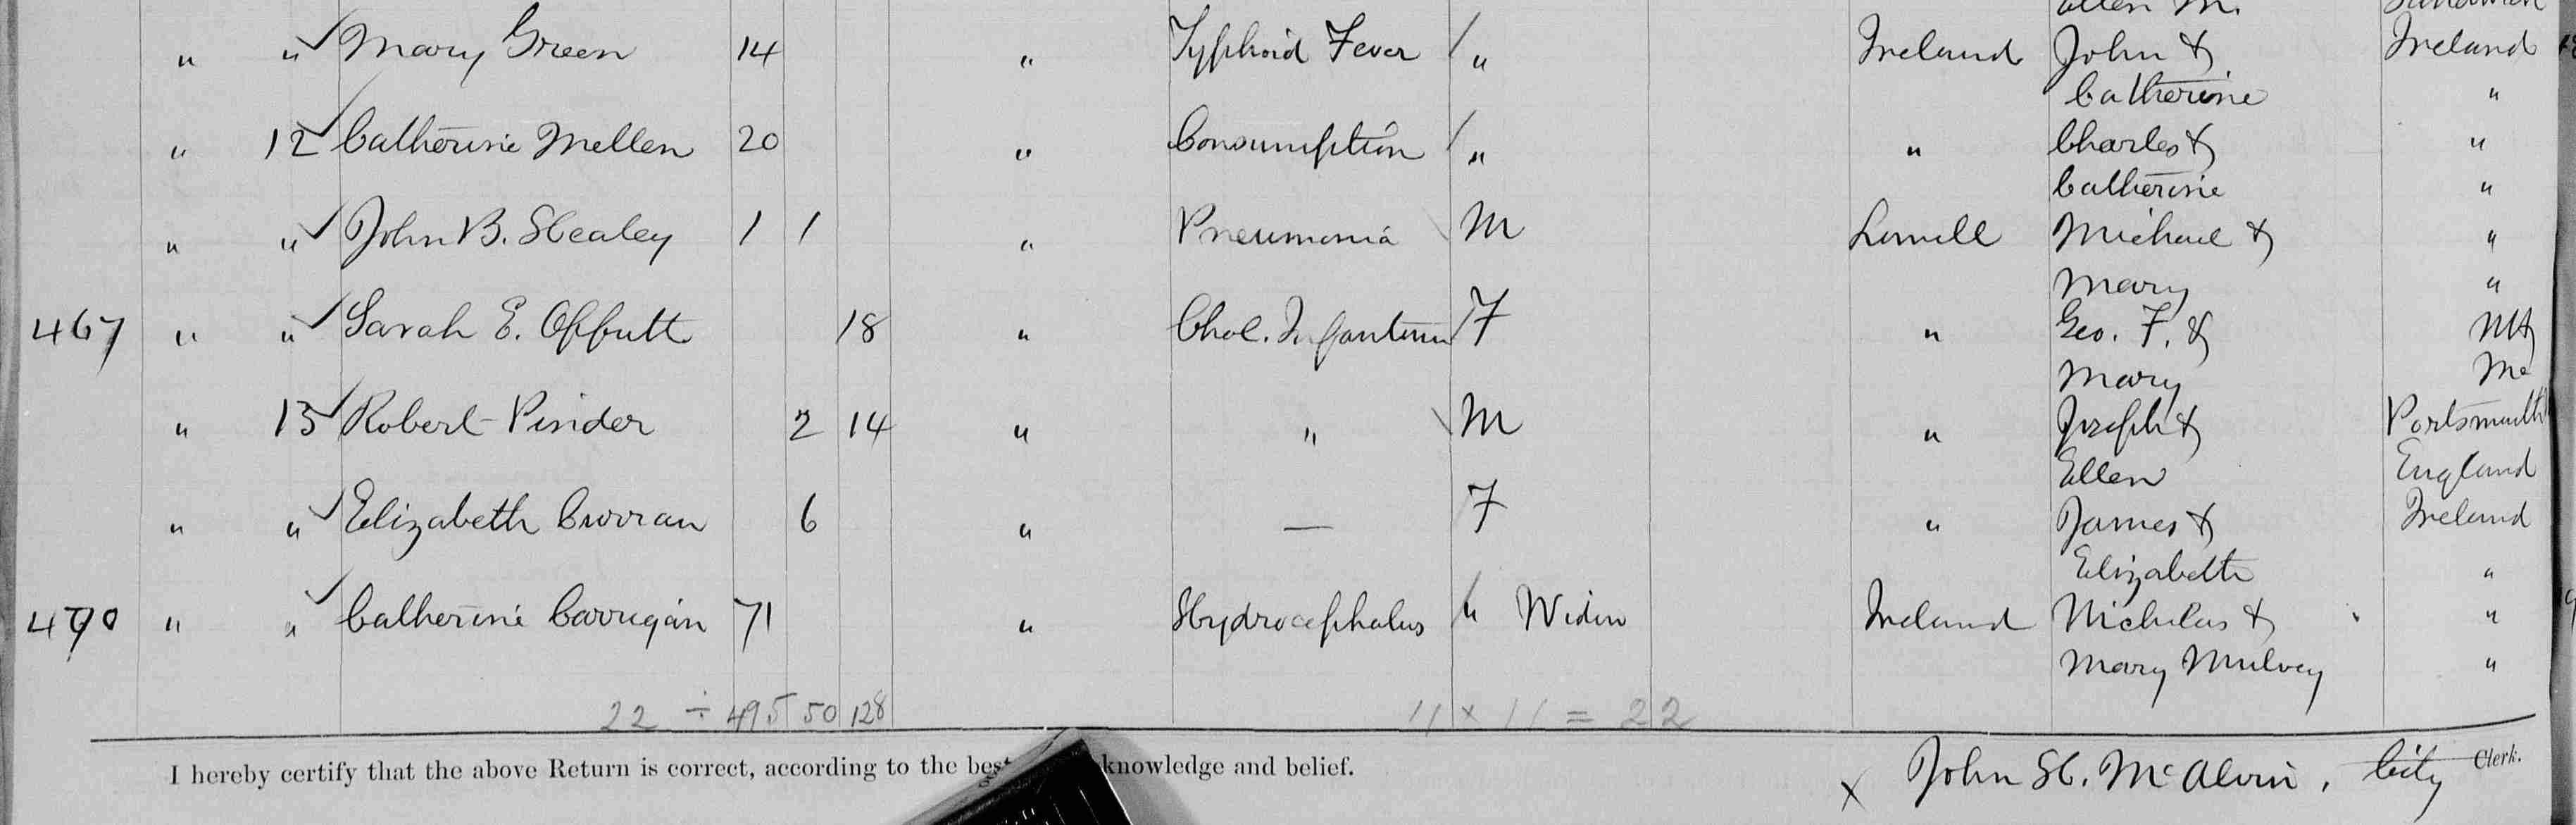 Ellen M.
" " Mary Green 14 " Typhoid Fever " Ireland John & Ireland
Catherine "
" 12 Catherine Mellen 20 " Consumption " " Charles & "
Catherine "
" " John B. Healey 1 1 " Pneumonia M Lowell Michael & "
Mary "
467 " " Sarah E. Offutt 18 " Chol. Infantum F " Geo. F. & NH
Mary Me
" 13 Robert Pinder 2 14 " " M " Joseph & Portsmouth
Ellen England
" " Elizabeth Curran 6 " — F " James & Ireland
Elizabeth "
470 " " Catherine Carrigan 71 " Hydrocephalus " Widow Ireland Nicholas & "
Mary Mulvey "
22 ÷ 495 50 128 11 × 11 = 22
I hereby certify that the above Return is correct, according to the best knowledge and belief.
x John H. McAlvin, City Clerk.